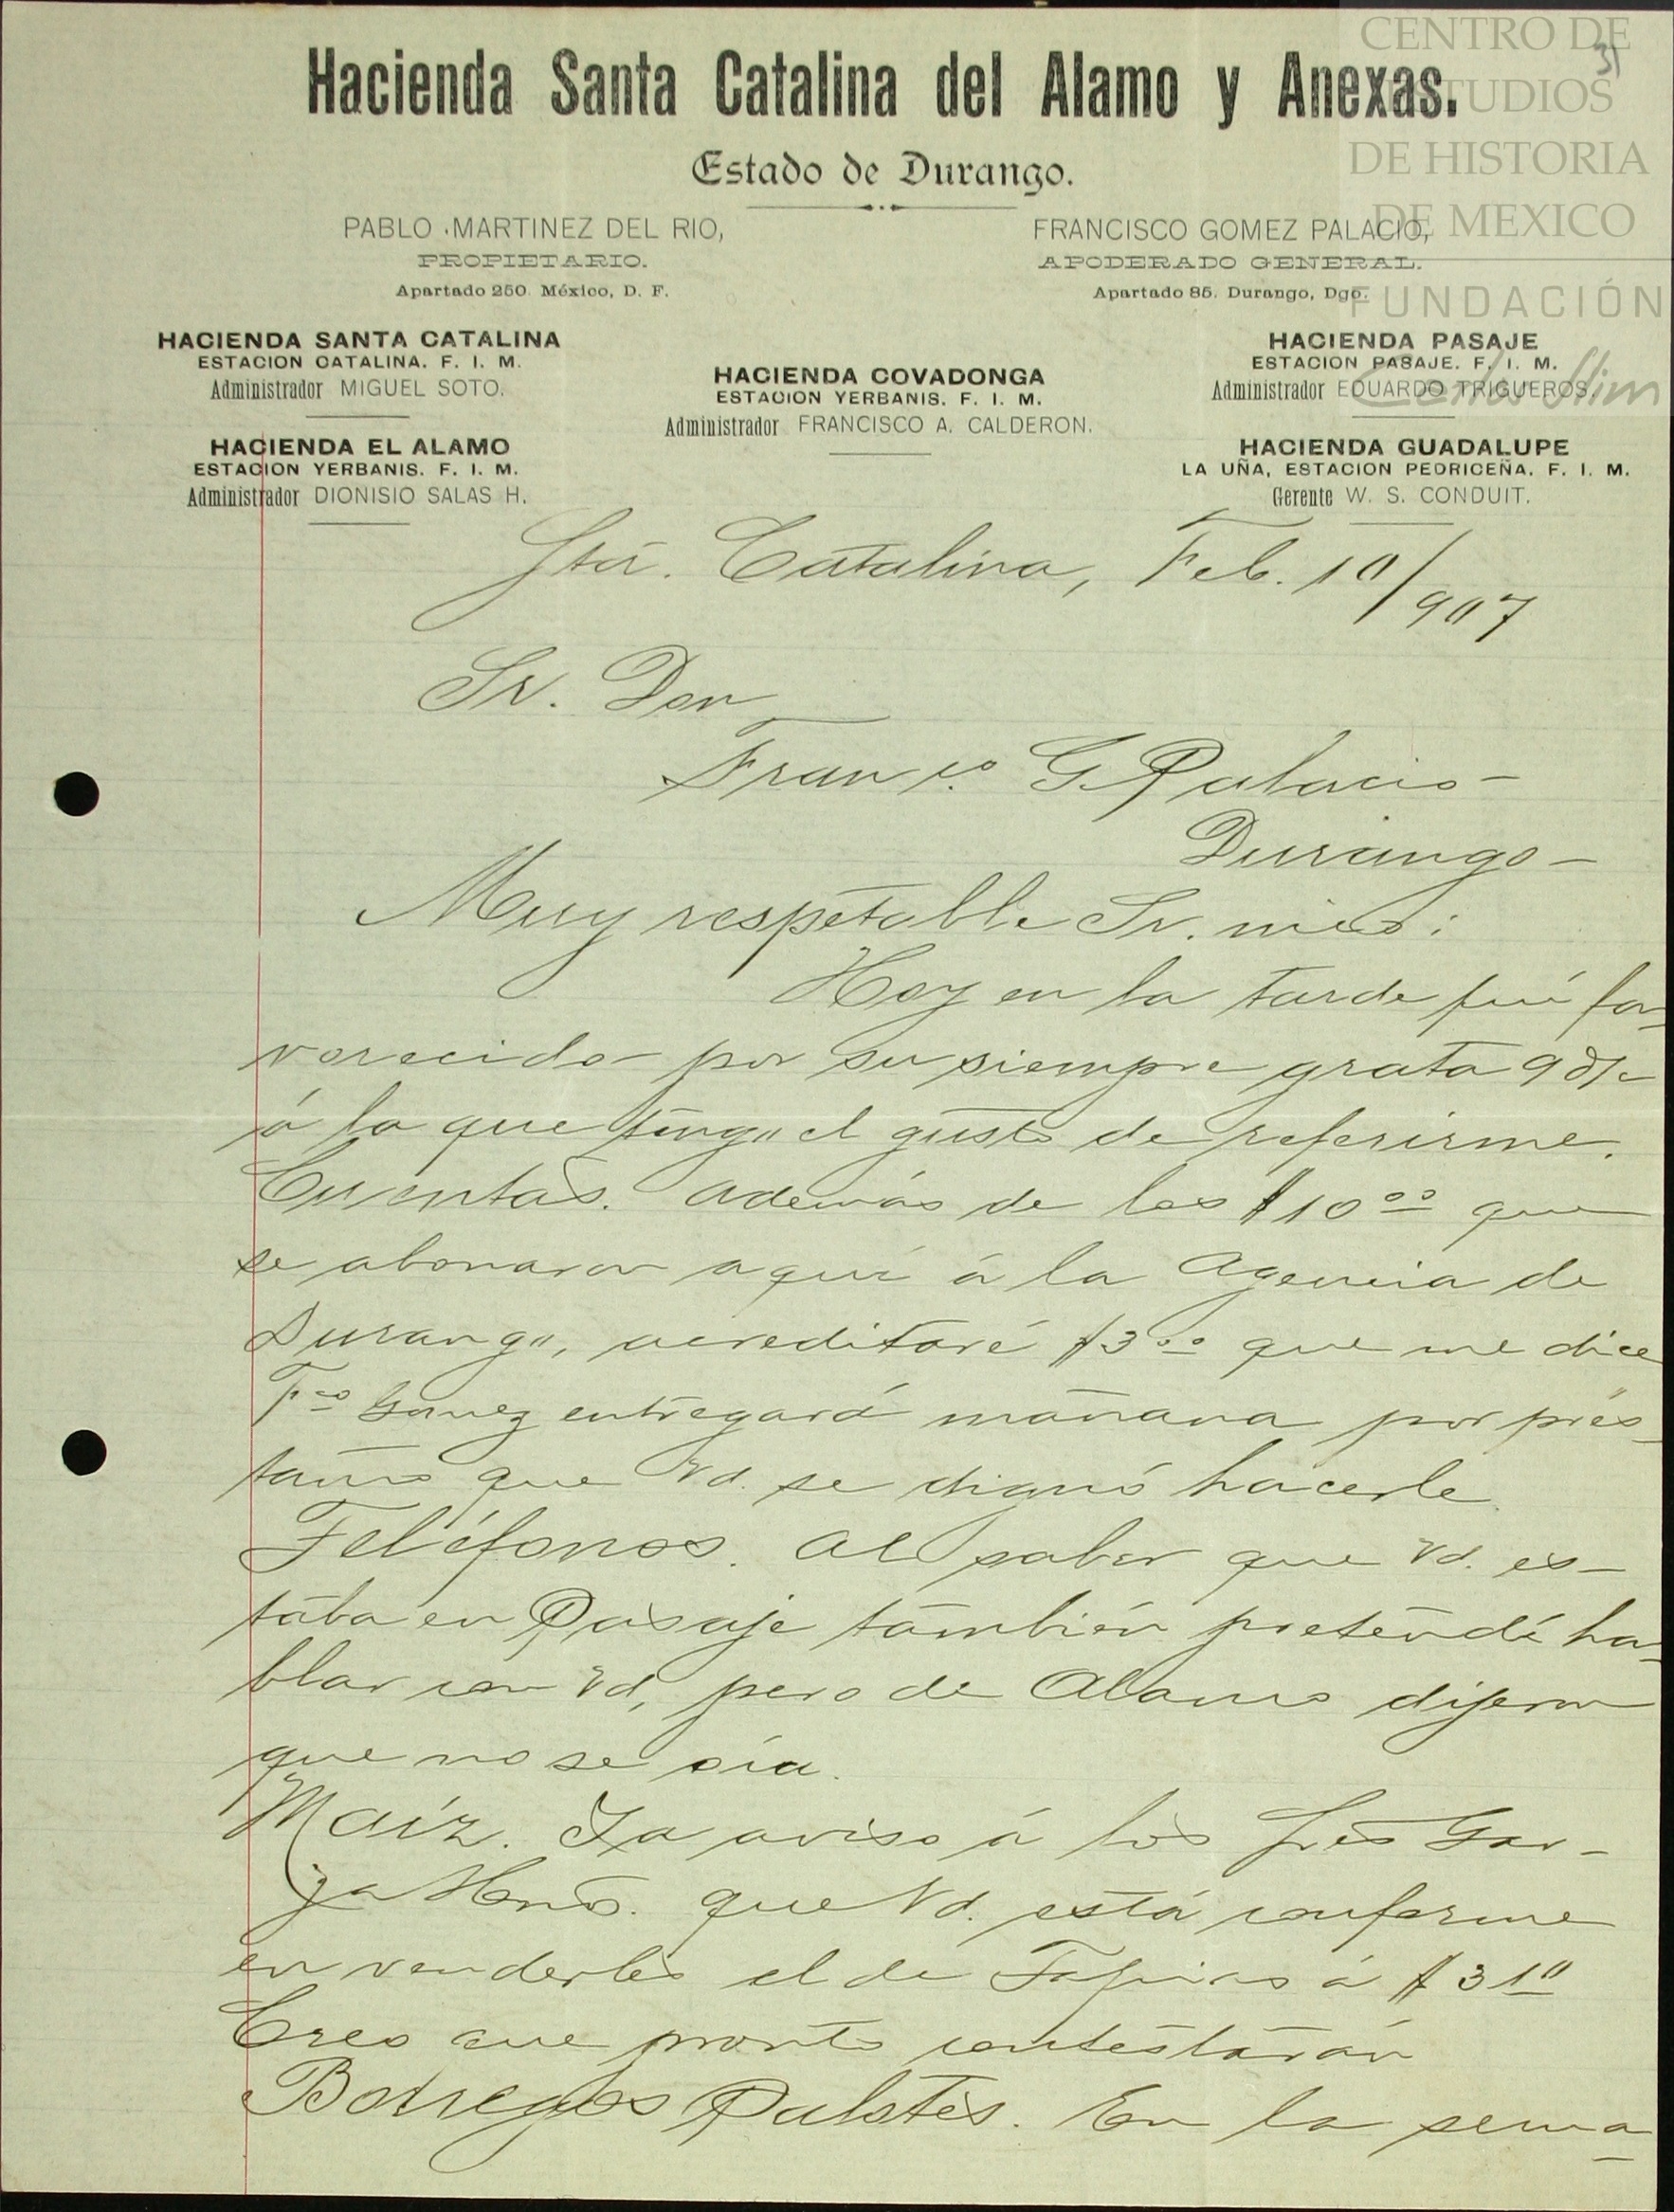 CENTRO DE
ESTUDIOS
DE HISTORIA
DE MEXICO
FUNDACIÓN
Carlos Slim
31
Hacienda Santa Catalina del Alamo y Anexas.
Estado de Durango.
PABLO MARTINEZ DEL RIO,
PROPIETARIO.
Apartado 250. México, D. F.
FRANCISCO GOMEZ PALACIO,
APODERADO GENERAL.
Apartado 85. Durango, Dgo.
HACIENDA SANTA CATALINA
ESTACION CATALINA. F. I. M.
Administrador MIGUEL SOTO.
HACIENDA EL ALAMO
ESTACION YERBANIS. F. I. M.
Administrador DIONISIO SALAS H.
HACIENDA COVADONGA
ESTACION YERBANIS. F. I. M.
Administrador FRANCISCO A. CALDERON.
HACIENDA PASAJE
ESTACION PASAJE. F. I. M.
Administrador EDUARDO TRIGUEROS.
HACIENDA GUADALUPE
LA UÑA, ESTACION PEDRICEÑA. F. I. M.
Gerente W. S. CONDUIT.
Sta. Catalina, Feb. 10/907
Sr. Don
Franco. G. Palacio
Durango
Muy respetable Sr. mio:
Hoy en la tarde fuí fa-
vorecido por su siempre grata 9
á la que tengo el gusto de referirme.
Cuentas. Además de los $10 00 que
se abonaron aquí á la Agencia de
Durango, acreditaré $3 00 que me dice
Fco Gomez entregará mañana por prés-
tamo que Vd. se dignó hacerle.
Teléfonos. Al saber que Vd. es-
taba en Pasaje también pretendí ha-
blar con Vd, pero de Alamo dijeron
que no se oía.
Maíz. Ya aviso á los Sres Gar-
za Hnos. que Vd. está conforme
en venderles el de Tapias á $3 10
Creo que pronto contestarán
Borregos Palotes. En la sema-